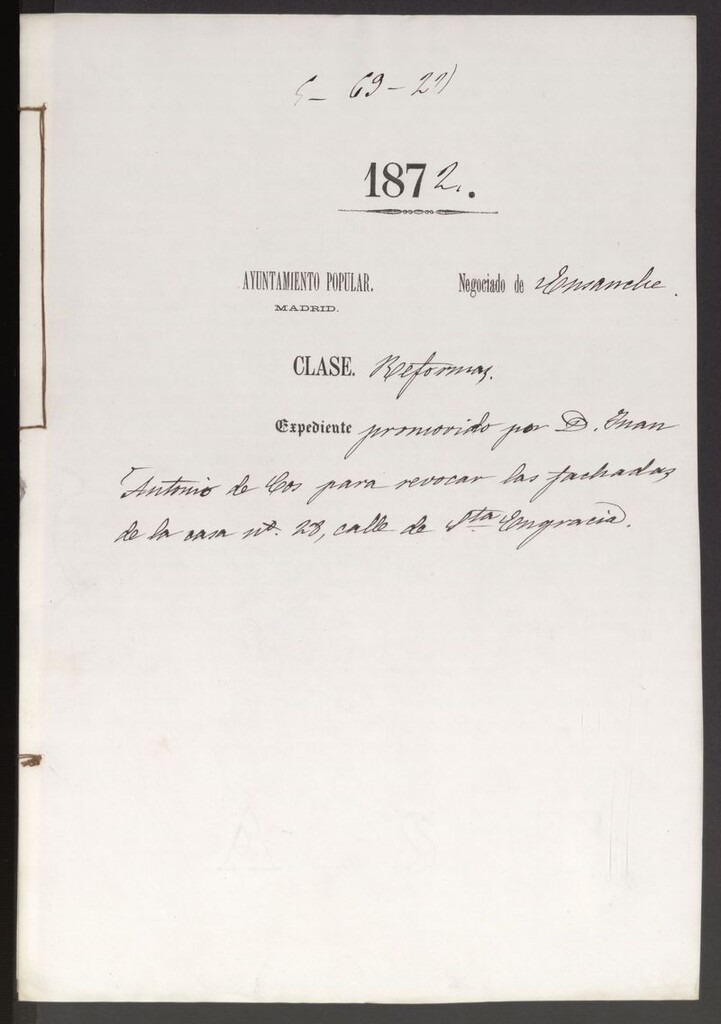 5-69-21
1872.
AYUNTAMIENTO POPULAR. Negociado de Ensanche.
MADRID.
CLASE. Reformas.
Expediente promovido por D. Juan
Antonio de Cos para revocar las fachadas
de la casa nº. 28, calle de Sta Engracia.